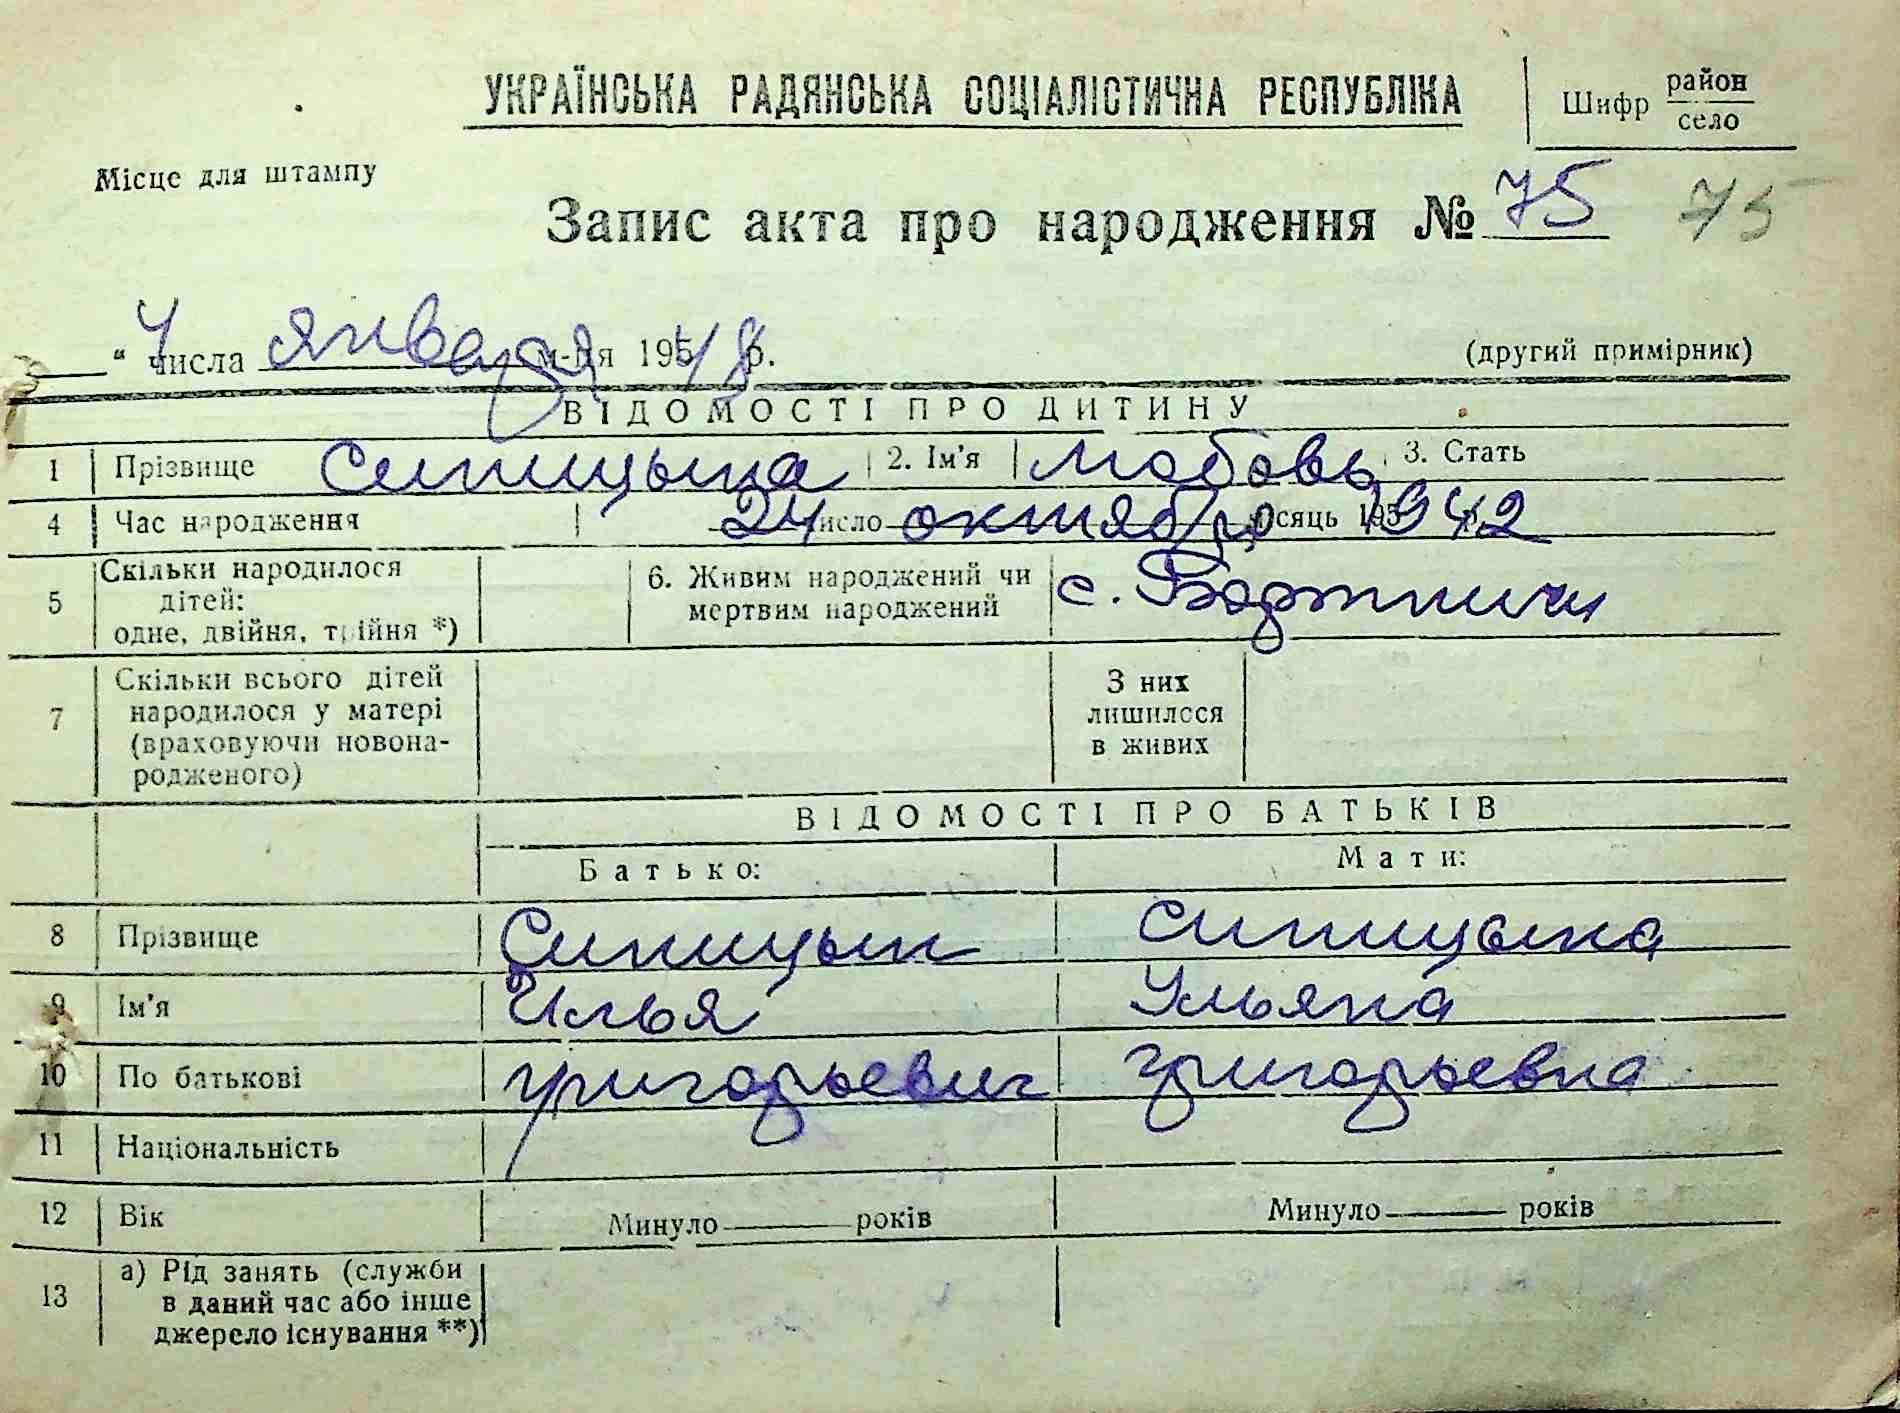 УКРАЇНСЬКА РАДЯНСЬКА СОЦІАЛІСТИЧНА РЕСПУБЛІКА
Шифр район
село
Місце для штампу
Запис акта про народження № 75 75
" 4 числа января м-ця 195 48 р. (другий примірник)
ВІДОМОСТІ ПРО ДИТИНУ
1 Прізвище Синицына 2. Ім'я Любовь 3. Стать
4 Час народження 24 число октября місяць 195 1942
5 Скільки народилося дітей: одне, двійня, трійня *) 6. Живим народжений чи мертвим народжений с. Бортничи
7 Скільки всього дітей народилося у матері (враховуючи новонародженого) З них лишилося в живих
ВІДОМОСТІ ПРО БАТЬКІВ
Батько: Мати:
8 Прізвище Синицын Синицына
9 Ім'я Илья Ульяна
10 По батькові Григорьевич Григорьевна
11 Національність
12 Вік Минуло років Минуло років
13 а) Рід занять (служби в даний час або інше джерело існування **)